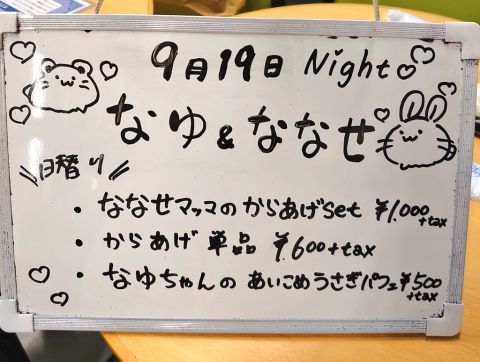 9月19日 Night
なゆ & ななせ
日替り
・ななせマッマのからあげset ¥1,000+tax
・からあげ 単品 ¥600+tax
・なゆちゃんの あいこめうさぎパフェ¥500+tax